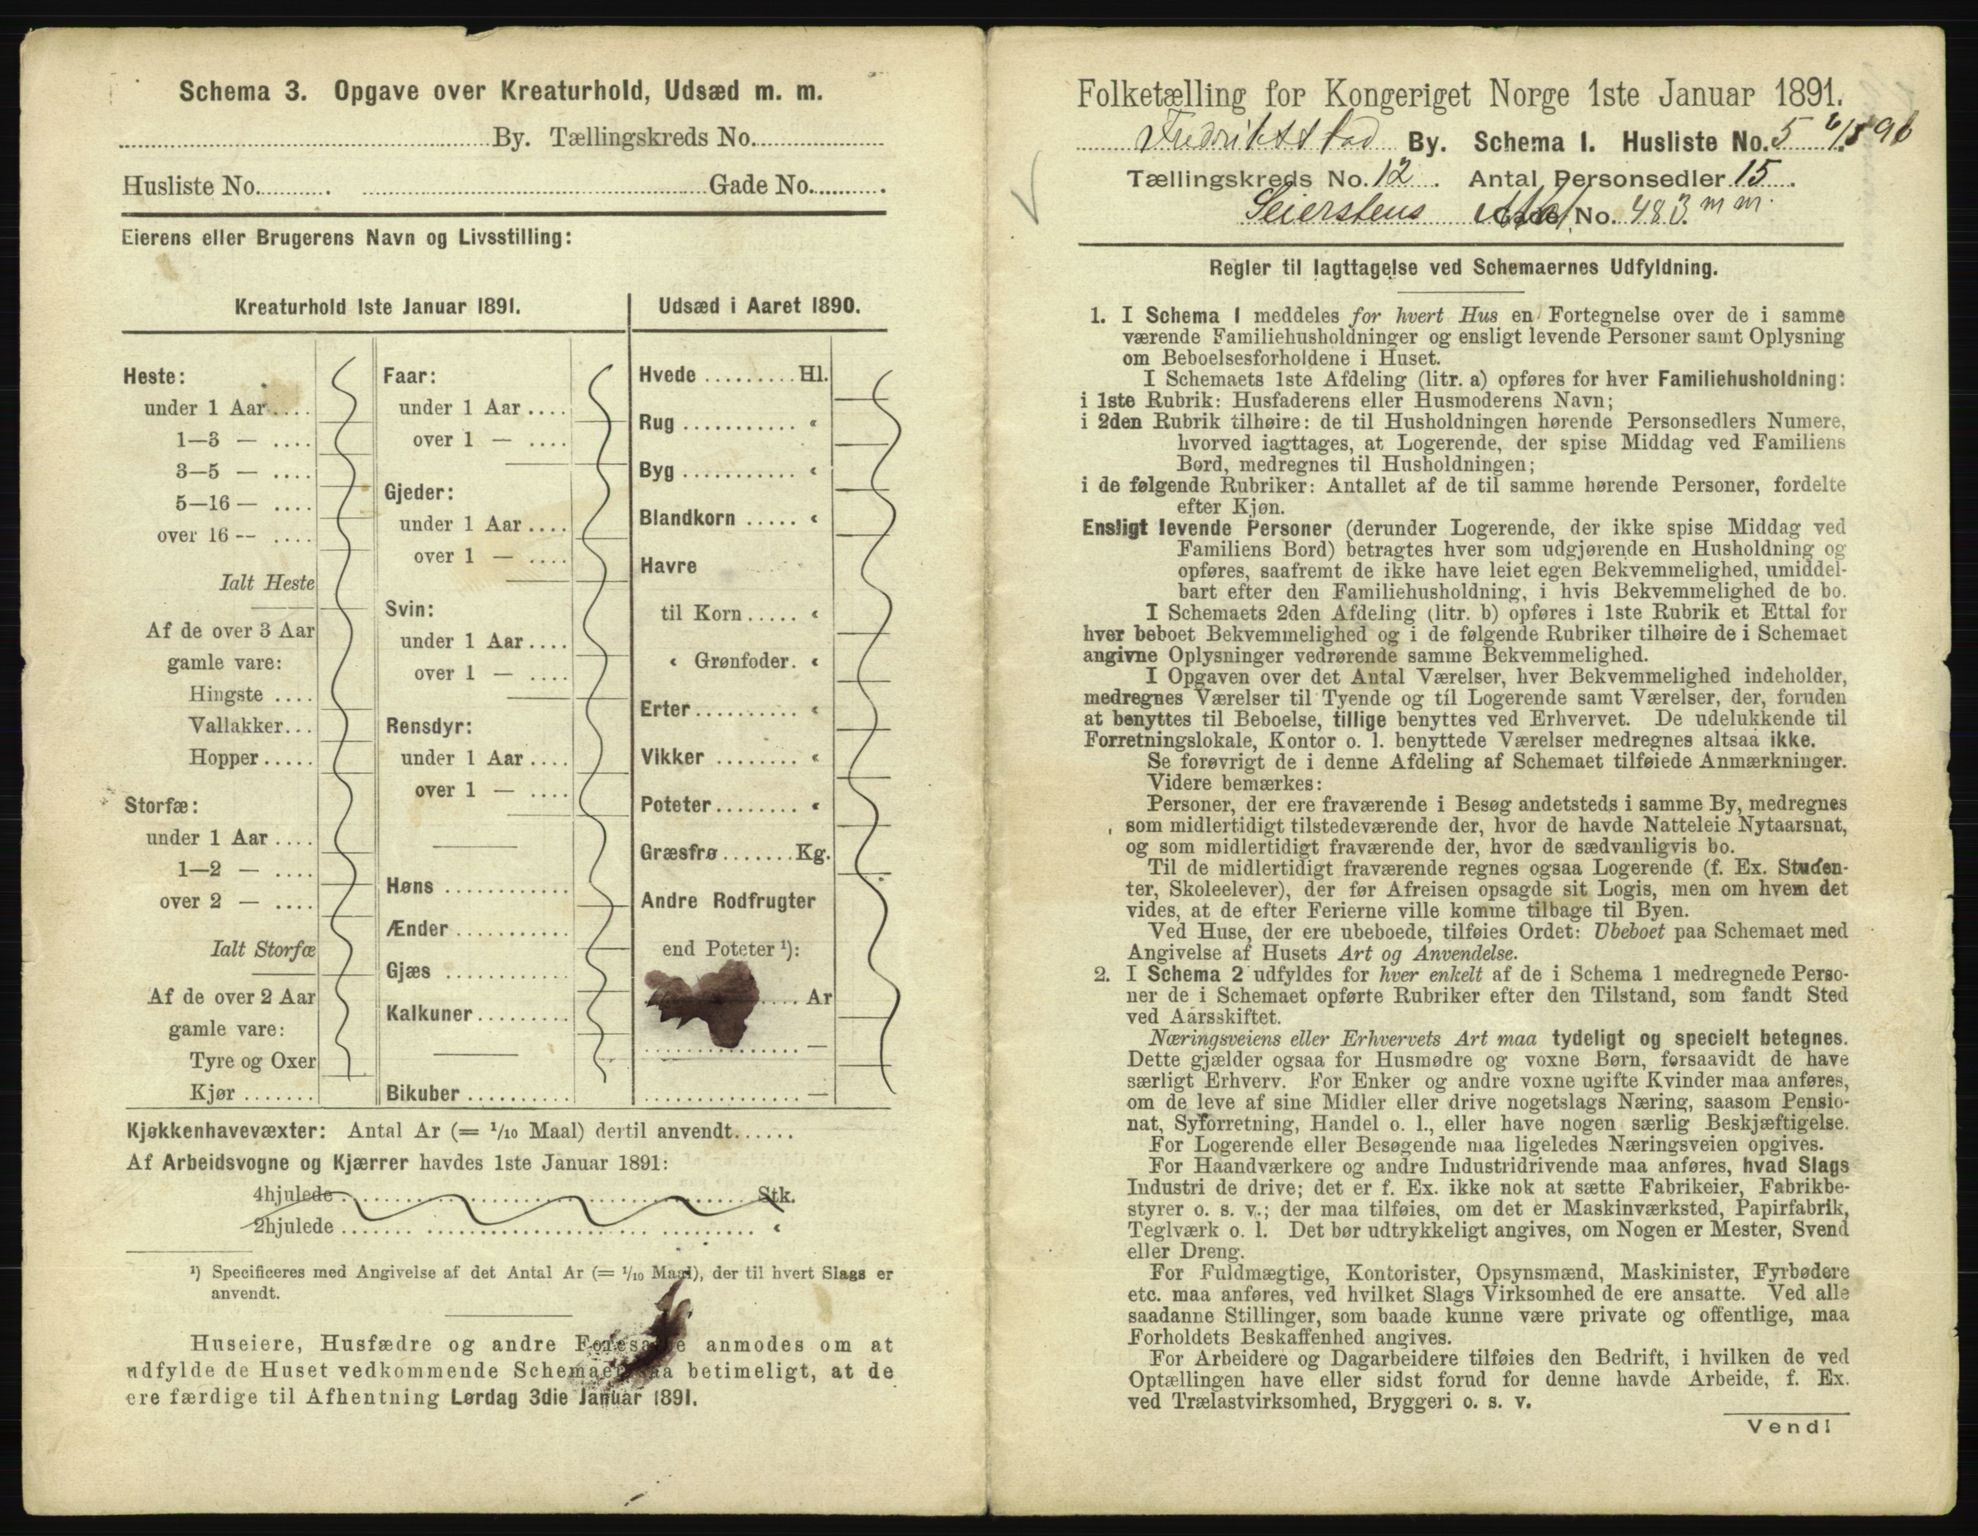 Schema 3. Opgave over Kreaturhold, Udsæd m. m.
By. Tællingskreds No.
Husliste No. Gade No.
Eierens eller Brugerens Navn og Livsstilling:
Kreaturhold 1ste Januar 1891.
Heste:
under 1 Aar
1—3 —
3—5 —
5—16 —
over 16 —
Ialt Heste
Af de over 3 Aar
gamle vare:
Hingste
Vallakker
Hopper
Storfæ:
under 1 Aar
1—2 —
over 2 —
Ialt Storfæ
Af de over 2 Aar
gamle vare:
Tyre og Oxer
Kjør
Faar:
under 1 Aar
over 1 —
Gjeder:
under 1 Aar
over 1 —
Svin:
under 1 Aar
over 1 —
Rensdyr:
under 1 Aar
over 1 —
Høns
Ænder
Gjæs
Kalkuner
Bikuber
Udsæd i Aaret 1890.
Hvede Hl.
Rug «
Byg «
Blandkorn «
Havre
til Korn «
« Grønfoder «
Erter «
Vikker «
Poteter «
Græsfrø Kg.
Andre Rodfrugter
end Poteter ¹):
Ar
—
—
Kjøkkenhavevæxter: Antal Ar (= 1/10 Maal) dertil anvendt
Af Arbeidsvogne og Kjærrer havdes 1ste Januar 1891:
4hjulede Stk.
2hjulede «
¹) Specificeres med Angivelse af det Antal Ar (= 1/10 Maal), der til hvert Slags er
anvendt.
Huseiere, Husfædre og andre Foresatte anmodes om at
udfylde de Huset vedkommende Schemaer saa betimeligt, at de
ere færdige til Afhentning Lørdag 3die Januar 1891.
Folketælling for Kongeriget Norge 1ste Januar 1891.
Fredrikstad By. Schema 1. Husliste No. 5
Tællingskreds No. 12. Antal Personsedler 15.
Seierstens Gade No. 483 m m.
Regler til Iagttagelse ved Schemaernes Udfyldning.
1. I Schema 1 meddeles for hvert Hus en Fortegnelse over de i samme
værende Familiehusholdninger og ensligt levende Personer samt Oplysning
om Beboelsesforholdene i Huset.
I Schemaets 1ste Afdeling (litr. a) opføres for hver Familiehusholdning:
i 1ste Rubrik: Husfaderens eller Husmoderens Navn;
i 2den Rubrik tilhøire: de til Husholdningen hørende Personsedlers Numere,
hvorved iagttages, at Logerende, der spise Middag ved Familiens
Bord, medregnes til Husholdningen;
i de følgende Rubriker: Antallet af de til samme hørende Personer, fordelte
efter Kjøn.
Ensligt levende Personer (derunder Logerende, der ikke spise Middag ved
Familiens Bord) betragtes hver som udgjørende en Husholdning og
opføres, saafremt de ikke have leiet egen Bekvemmelighed, umiddel-
bart efter den Familiehusholdning, i hvis Bekvemmelighed de bo.
I Schemaets 2den Afdeling (litr. b) opføres i 1ste Rubrik et Ettal for
hver beboet Bekvemmelighed og i de følgende Rubriker tilhøire de i Schemaet
angivne Oplysninger vedrørende samme Bekvemmelighed.
I Opgaven over det Antal Værelser, hver Bekvemmelighed indeholder,
medregnes Værelser til Tyende og til Logerende samt Værelser, der, foruden
at benyttes til Beboelse, tillige benyttes ved Erhvervet. De udelukkende til
Forretningslokale, Kontor o. l. benyttede Værelser medregnes altsaa ikke.
Se forøvrigt de i denne Afdeling af Schemaet tilføiede Anmærkninger.
Videre bemærkes:
Personer, der ere fraværende i Besøg andetsteds i samme By, medregnes
som midlertidigt tilstedeværende der, hvor de havde Natteleie Nytaarsnat,
og som midlertidigt fraværende der, hvor de sædvanligvis bo.
Til de midlertidigt fraværende regnes ogsaa Logerende (f. Ex. Studen-
ter, Skoleelever), der før Afreisen opsagde sit Logis, men om hvem det
vides, at de efter Ferierne ville komme tilbage til Byen.
Ved Huse, der ere ubeboede, tilføies Ordet: Ubeboet paa Schemaet med
Angivelse af Husets Art og Anvendelse.
2. I Schema 2 udfyldes for hver enkelt af de i Schema 1 medregnede Perso-
ner de i Schemaet opførte Rubriker efter den Tilstand, som fandt Sted
ved Aarsskiftet.
Næringsveiens eller Erhvervets Art maa tydeligt og specielt betegnes.
Dette gjælder ogsaa for Husmødre og voxne Børn, forsaavidt de have
særligt Erhverv. For Enker og andre voxne ugifte Kvinder maa anføres,
om de leve af sine Midler eller drive nogetslags Næring, saasom Pensio-
nat, Syforretning, Handel o. l., eller have nogen særlig Beskjæftigelse.
For Logerende eller Besøgende maa ligeledes Næringsveien opgives.
For Haandværkere og andre Industridrivende maa anføres, hvad Slags
Industri de drive; det er f. Ex. ikke nok at sætte Fabrikeier, Fabrikbe-
styrer o. s. v.; der maa tilføies, om det er Maskinværksted, Papirfabrik,
Teglværk o. l. Det bør udtrykkeligt angives, om Nogen er Mester, Svend
eller Dreng.
For Fuldmægtige, Kontorister, Opsynsmænd, Maskinister, Fyrbødere
etc. maa anføres, ved hvilket Slags Virksomhed de ere ansatte. Ved alle
saadanne Stillinger, som baade kunne være private og offentlige, maa
Forholdets Beskaffenhed angives.
For Arbeidere og Dagarbeidere tilføies den Bedrift, i hvilken de ved
Optællingen have eller sidst forud for denne havde Arbeide, f. Ex.
ved Trælastvirksomhed, Bryggeri o. s. v.
Vend!